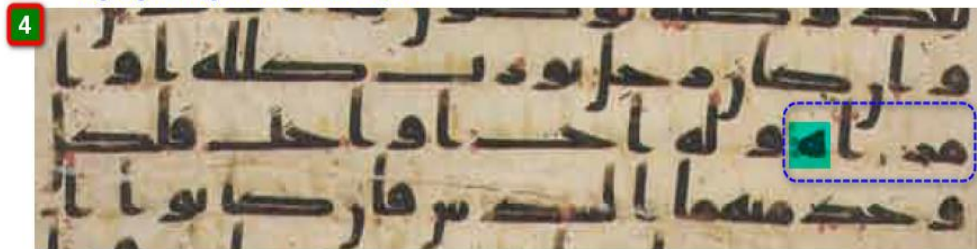 4
وان كان رجل يورث كلله او ا
مراه وله اخ او اخت فلكل
وحد منهما السدس فان كانوا ا